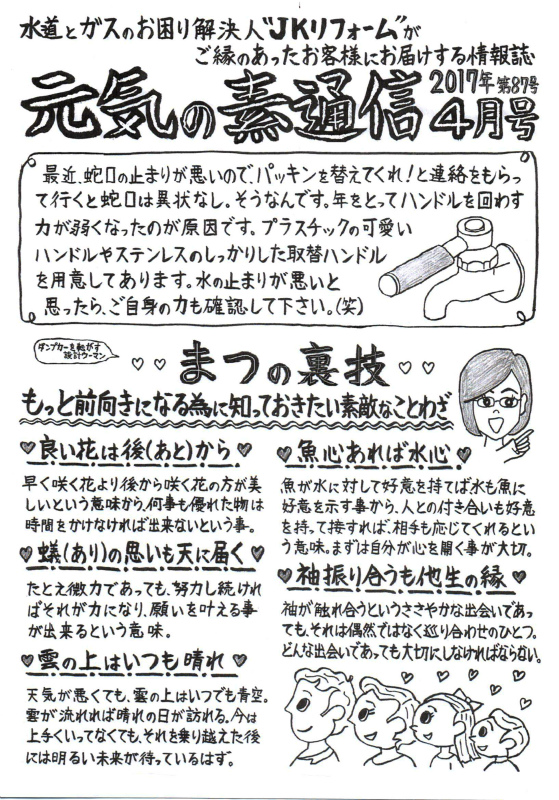 水道とガスのお困り解決人"JKリフォーム"が
ご縁のあったお客様にお届けする情報誌
元気の素通信
2017年 第87号
4月号
最近、蛇口の止まりが悪いので、パッキンを替えてくれ!と連絡をもらっ
て行くと蛇口は異状なし。そうなんです。年をとってハンドルを回わす
力が弱くなったのが原因です。プラスチックの可愛い
ハンドルやステンレスのしっかりした取替ハンドル
を用意してあります。水の止まりが悪いと
思ったら、ご自身の力も確認して下さい。(笑)
ダンプカーを転がす
設計ウーマン
♡♡ まつの裏技 ♡♡
もっと前向きになる為に知っておきたい素敵なことわざ
♥良い花は後(あと)から♥
早く咲く花より後から咲く花の方が美
しいという意味から、何事も優れた物は
時間をかけなければ出来ないという事。
♥蟻(あり)の思いも天に届く♥
たとえ微力であっても、努力し続けれ
ばそれが力になり、願いを叶える事
が出来るという意味。
♥雲の上はいつも晴れ♥
天気が悪くても、雲の上はいつでも青空。
雲が流れれば晴れの日が訪れる。今は
上手くいってなくても、それを乗り越えた後
には明るい未来が待っているはず。
♥魚心あれば水心♥
魚が水に対して好意を持てば、水も魚に
好意を示す事から、人との付き合いも好意
を持って接すれば、相手も応じてくれるとい
う意味。まずは自分が心を開く事が大切。
♥袖振り合うも他生の縁♥
袖が触れ合うというささやかな出会いであっ
ても、それは偶然ではなく巡り合わせのひとつ。
どんな出会いであっても大切にしなければならない。